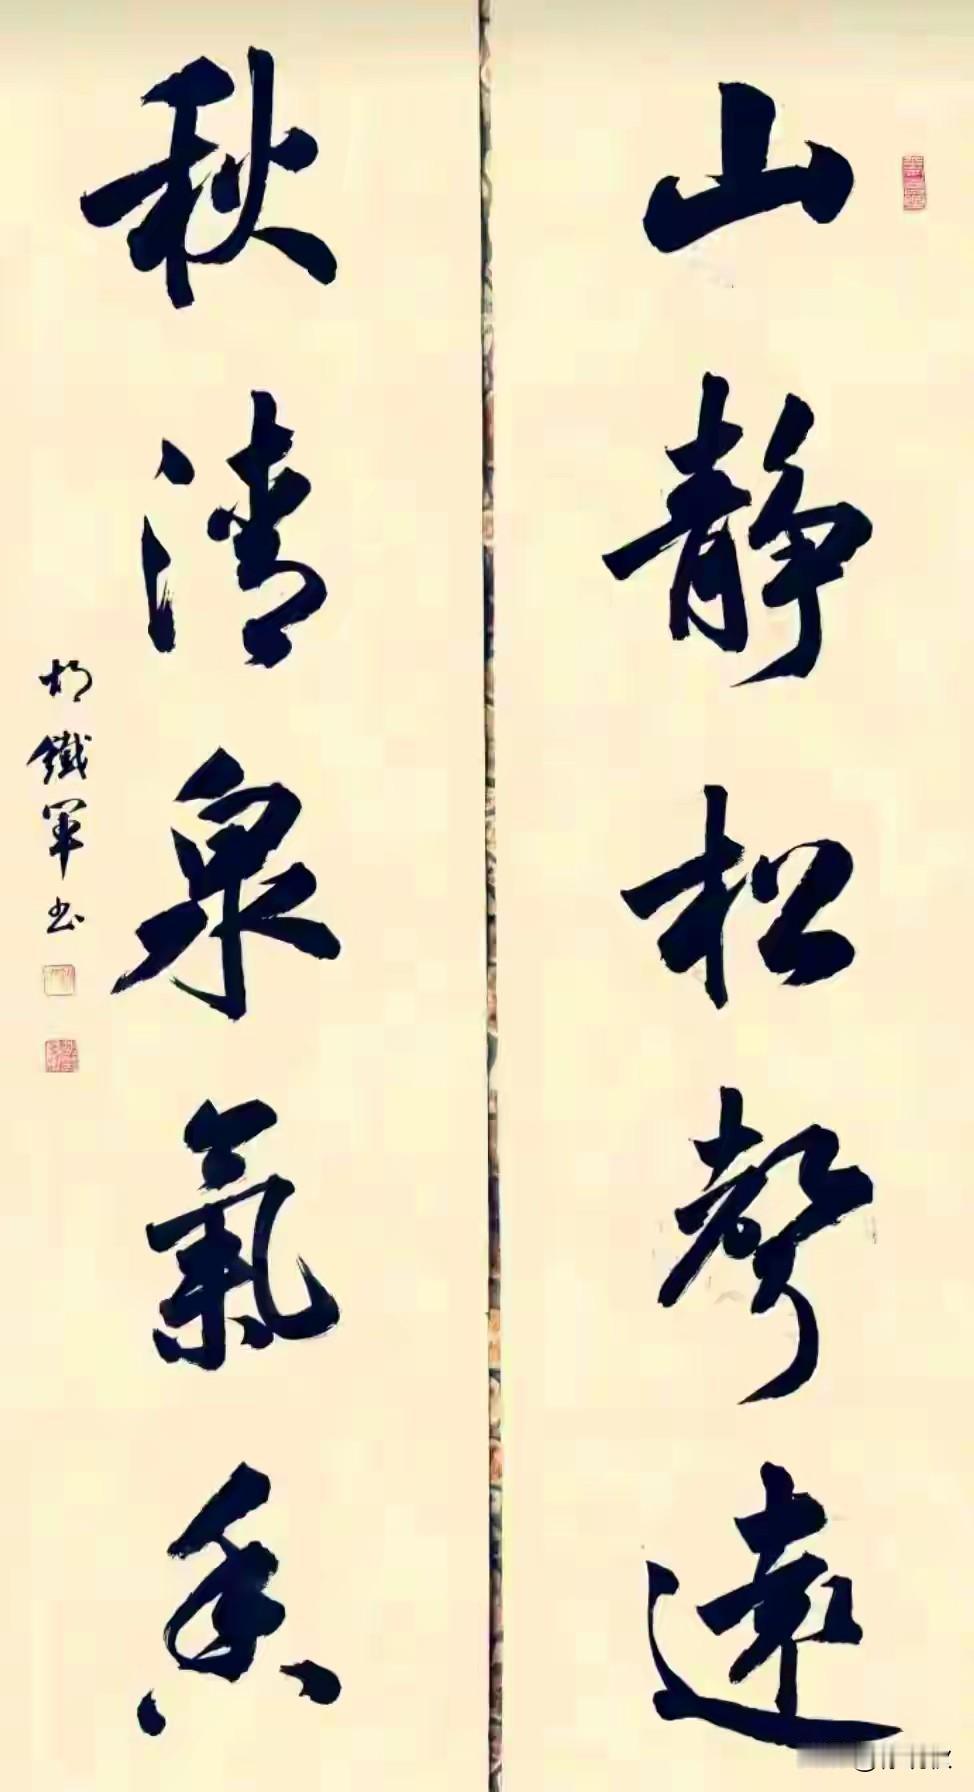 山靜松聲遠
秋清泉氣香
胡鐵軍书